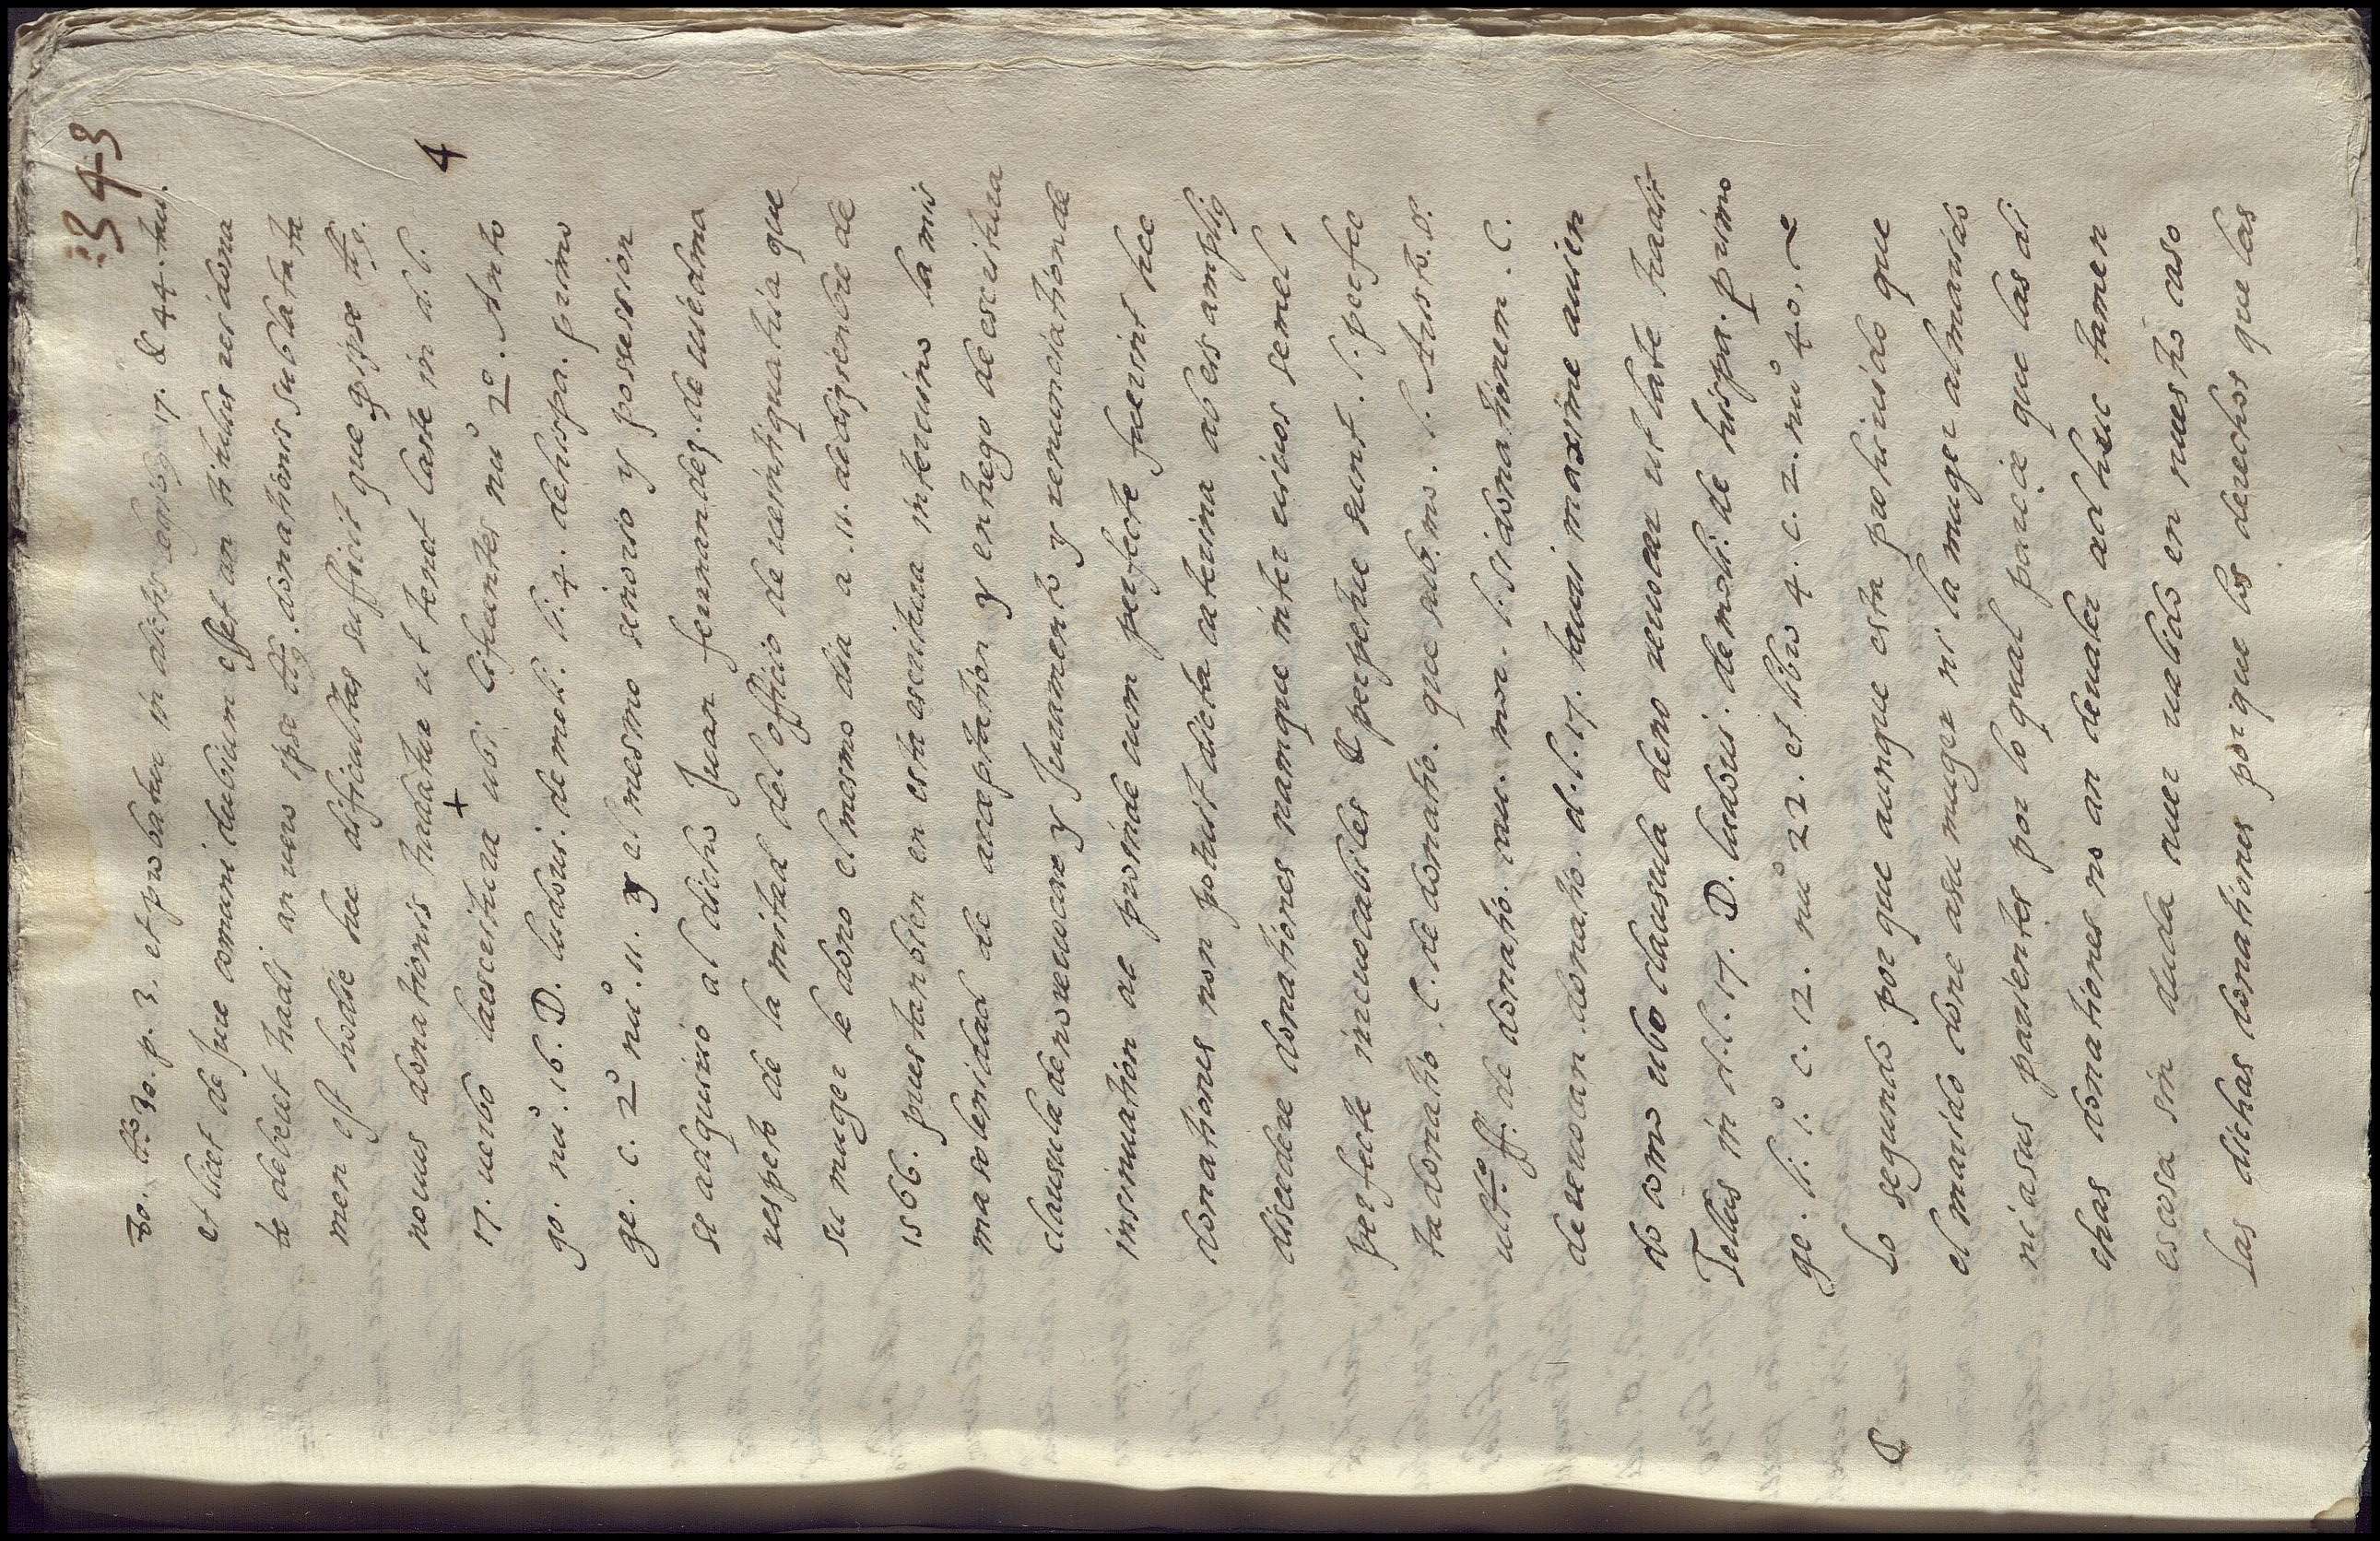 343
to. tit.º 30. p. 3. et probatur in dictis legibus 17. & 44. tau.
et licet de jure comuni dubium esset an titulus rei dona
te deberet tradi an vero ipse titus. donationis sublata ta
men est hodie hec dificultas sufficit que ipse tits.
4
novus donationis tradatur ut tenet late in d. l.
17. verbo la escritura + ubi. Cifuentes nuº 2º. Anto
go. nuº. 16. D. ludovi. de moli. li. 4. de hispa. primo
ge. c. 2º nuº. 11. y el mesmo senorio y possession
se adquirio al dicho Juan fernandez. de uiedma
respeto de la mitad del officio de veintiquatria que
su muger le dono el mesmo dia a .11. de diziembre de
1566. pues tanbien en esta escritura intervino la mis
ma solenidad de acceptation y entrego de escritura
clausula de no revocare y Juramento y renunciation de
insinuation ac proinde cum perfecte fuerint hec
donationes non potuit dicta caterina ab eis amplius
discedere donationes namque inter vivos semel,
perfecte irrevocabiles & perpetue sunt. l. perfec
ta donatio. C. de donatio. que sub. mo. l. Aristo. D.
ult.º ff. de donatio. cau. mor. l. si donationem. C.
de revocan. donatio. d. l. 17. tauri maxime avien
do como ubo clausula de no revocar ut late tradit
Tellus in d. l. 17. D. ludovi. de moli. de hispa. primo
ge. li. 1.º c. 12. nuº 22. et libro 4. c. 2. nuº 40.
Lo segundo por que aunque esta prohivido que
el marido done a su muger ni la muger al marido
ni a sus parientes por lo qual parece que las di
chas donationes no an de valer adhuc tamen
es cosa sin duda aver valido en nuestro caso
Las dichas donationes por que los derechos que las